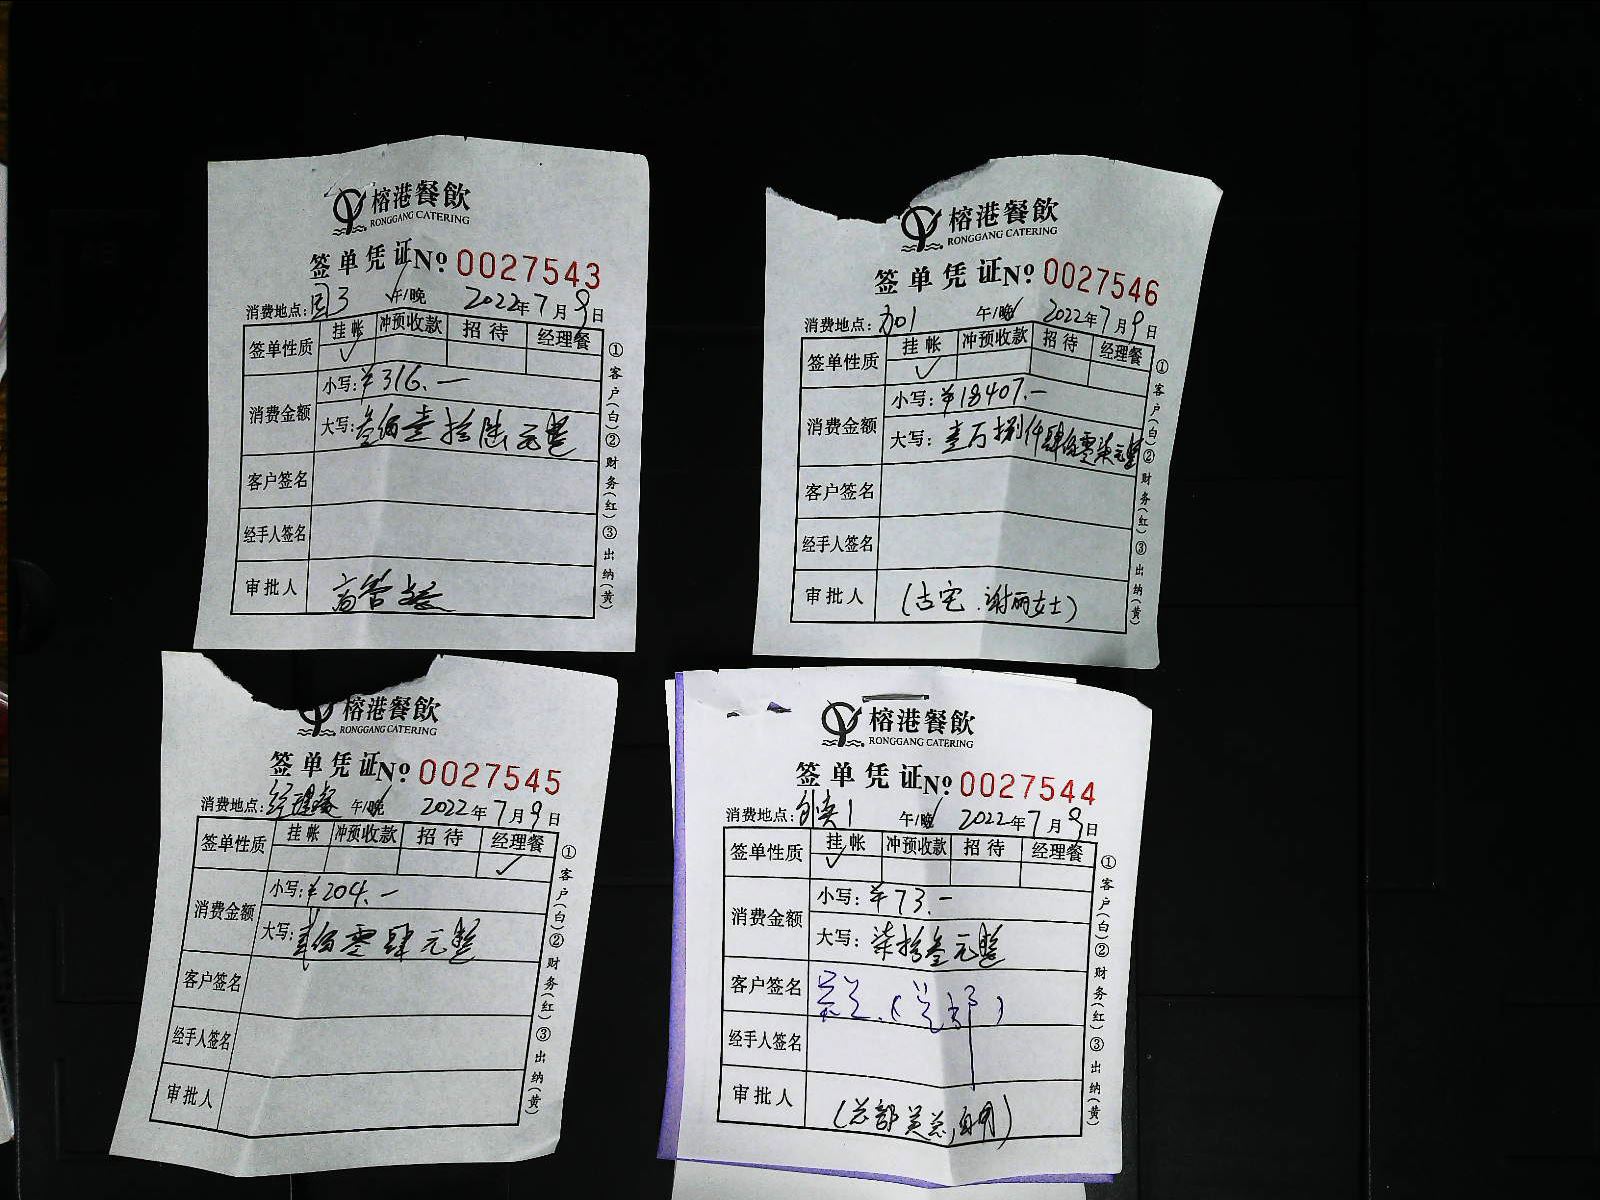 榕港餐飲
RONGGANG CATERING
签单凭证 No 0027543
消费地点: 午/晚 2022年7月9日
签单性质 挂帐 冲预收款 招待 经理餐
✓
消费金额 小写:¥316.—
大写:叁佰壹拾陆元整
客户签名
经手人签名
审批人
①客户(白)②财务(红)③出纳(黄)
榕港餐飲
RONGGANG CATERING
签单凭证 No 0027546
消费地点: 午/晚 2022年7月9日
签单性质 挂帐 冲预收款 招待 经理餐
✓
消费金额 小写:¥18407.—
大写:壹万捌仟肆佰零柒元整
客户签名
经手人签名
审批人 (古宅.谢丽女士)
①客户(白)②财务(红)③出纳(黄)
榕港餐飲
RONGGANG CATERING
签单凭证 No 0027545
消费地点:经理餐 午/晚 2022年7月9日
签单性质 挂帐 冲预收款 招待 经理餐
✓
消费金额 小写:¥204.—
大写:贰佰零肆元整
客户签名
经手人签名
审批人
①客户(白)②财务(红)③出纳(黄)
榕港餐飲
RONGGANG CATERING
签单凭证 No 0027544
消费地点: 午/晚 2022年7月9日
签单性质 挂帐 冲预收款 招待 经理餐
✓
消费金额 小写:¥73.—
大写:柒拾叁元整
客户签名
经手人签名
审批人
①客户(白)②财务(红)③出纳(黄)